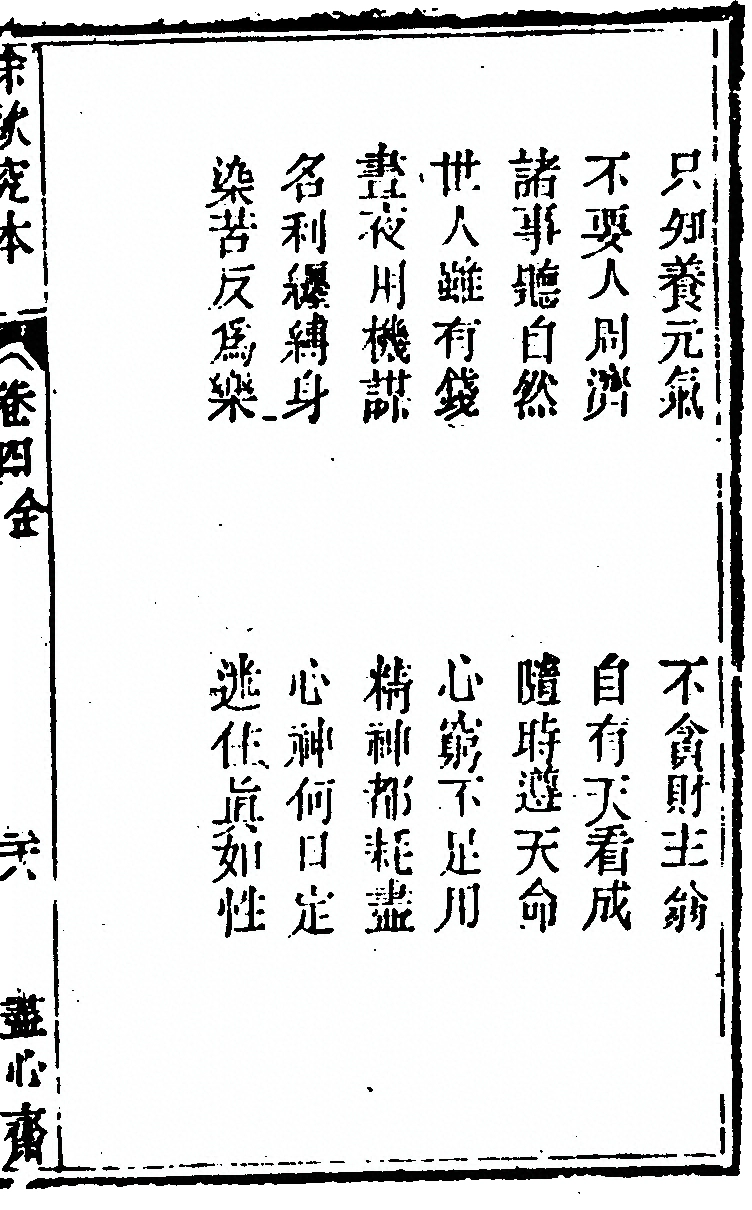 只知養元氣　不貪財主翁
不要人周濟　自有天看成
諸事聽自然　隨時遵天命
世人雖有錢　心窮不足用
晝夜用機謀　精神都耗盡
名利纏縛身　心神何日定
染苦反爲樂　迷住眞如性
究本　卷四金　盡心齋